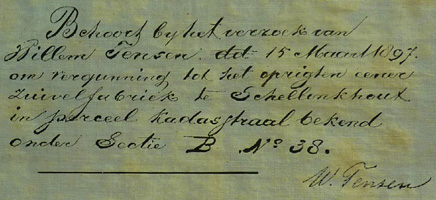 Behoort by het verzoek van
Willem Tensen. dd: 15 Maart 1897.
om vergunning tot het oprigten eener
zuivelfabriek te Schellinkhout
in perceel kadastraal bekend
onder Sectie B No 38.
W. Tensen